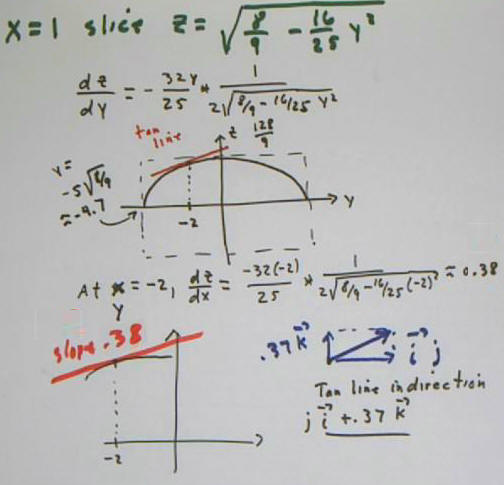 x=1 slice z = √(8/9 - 16/25 y²)
dz/dy = - 32y/25 * 1/(2√(8/9 - 16/25 y²))
tan line
z
128/9
y =
-5√8/9
≈ -4.7
-2
y
At x = -2, dz/dx = -32(-2)/25 * 1/(2√(8/9 - 16/25(-2)²)) ≈ 0.38
y
slope .38
.37 k→
i→ j
Tan line in direction
j i→ + .37 k→
-2